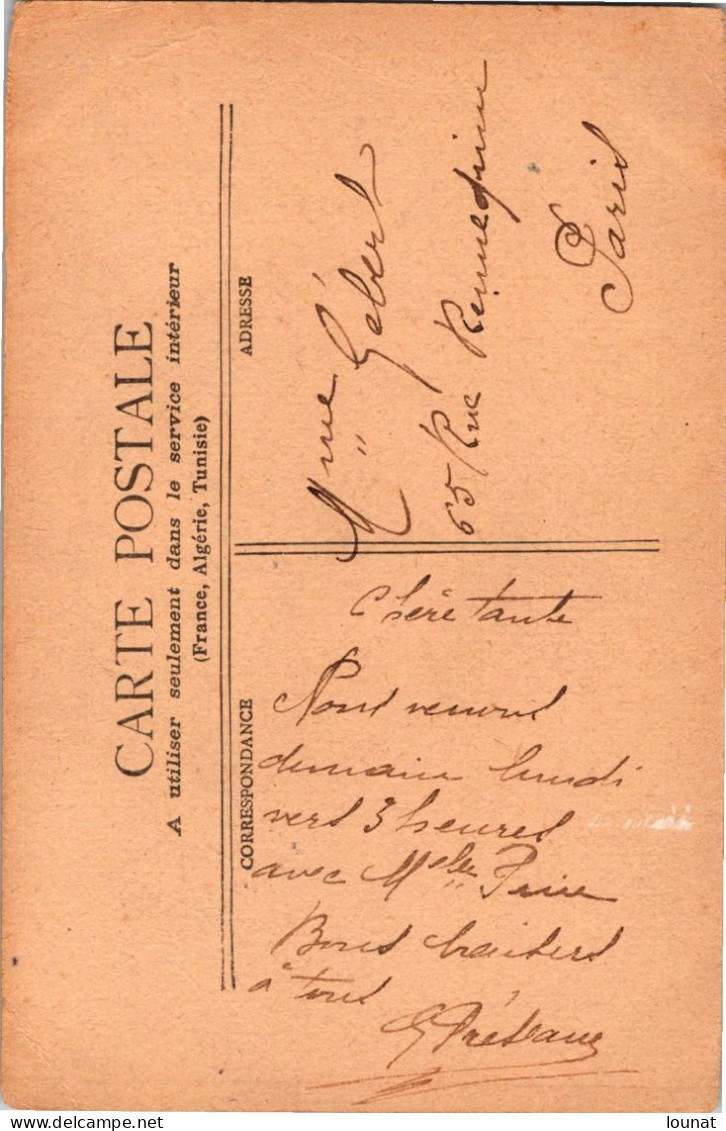 CARTE POSTALE
A utiliser seulement dans le service intérieur
(France, Algérie, Tunisie)
CORRESPONDANCE
ADRESSE
Chère tante
Nous venons
demain lundi
vers 3 heures
avec Melle
Bons baisers
à tous
Mme Gébert
65 Rue
Paris
© delcampe.net
lounat